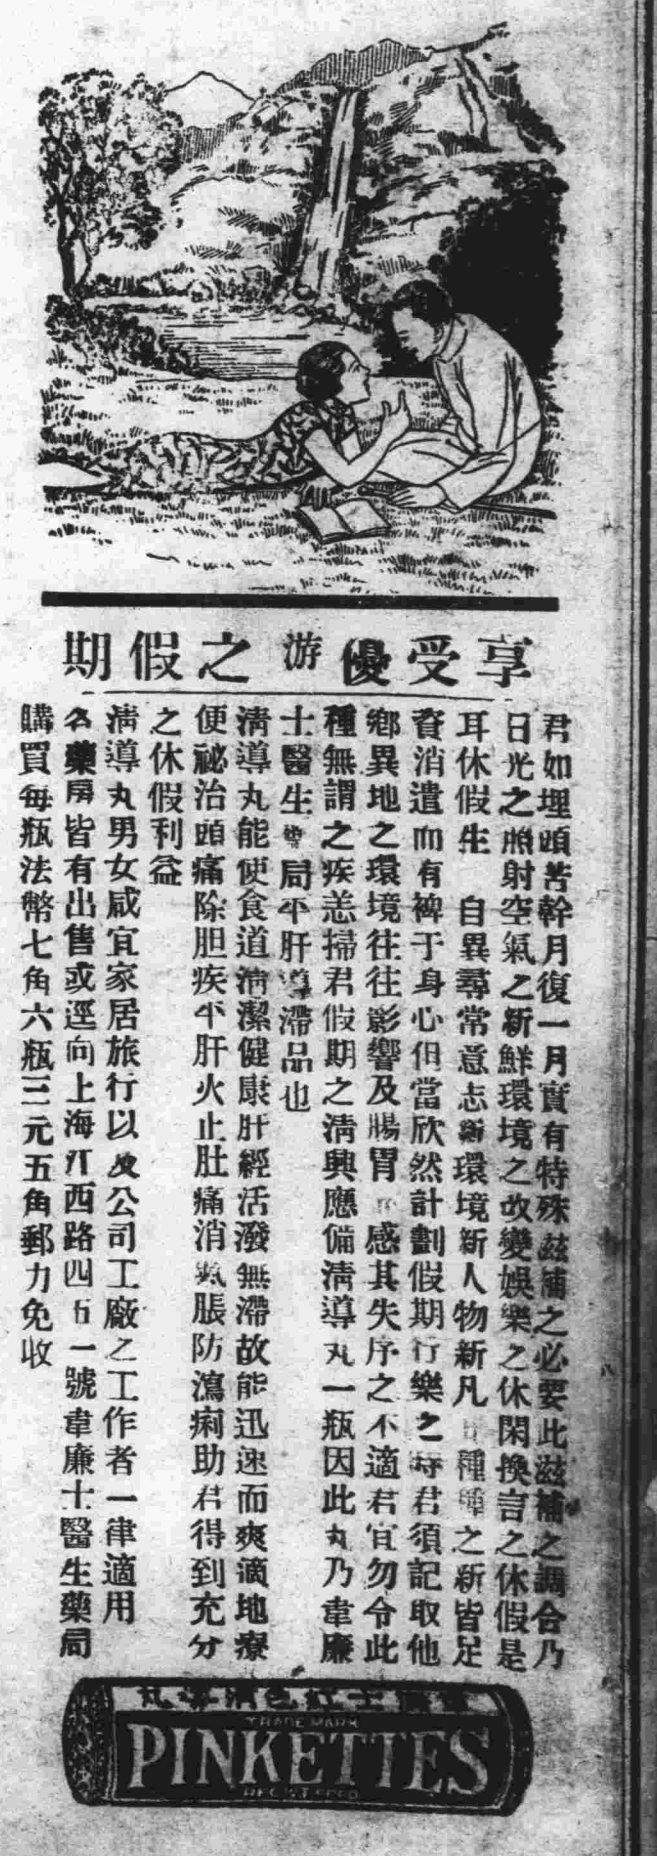 享受優游之假期
君如埋頭苦幹月復一月實有特殊滋補之必要此滋補之調合乃
日光之照射空氣之新鮮環境之改變娛樂之休閑換言之休假是
耳休假生 自異尋常意志新環境新人物新凡 種種之新皆足
資消遣而有裨于身心但當欣然計劃假期行樂之時君須記取他
鄉異地之環境往往影響及腸胃 感其失序之不適君宜勿令此
種無謂之疾恙掃君假期之清興應備清導丸一瓶因此丸乃韋廉
士醫生藥局平肝導滯品也
清導丸能使食道清潔健康肝經活潑無滯故能迅速而爽適地療
便祕治頭痛除胆疾平肝火止肚痛消氣脹防瀉痢助君得到充分
之休假利益
清導丸男女咸宜家居旅行以及公司工廠之工作者一律適用
各藥房皆有出售或逕向上海江西路四五一號韋廉士醫生藥局
購買每瓶法幣七角六瓶三元五角郵力免收
士紅色清導丸
TRADE MARK
PINKETTES
REGISTERED